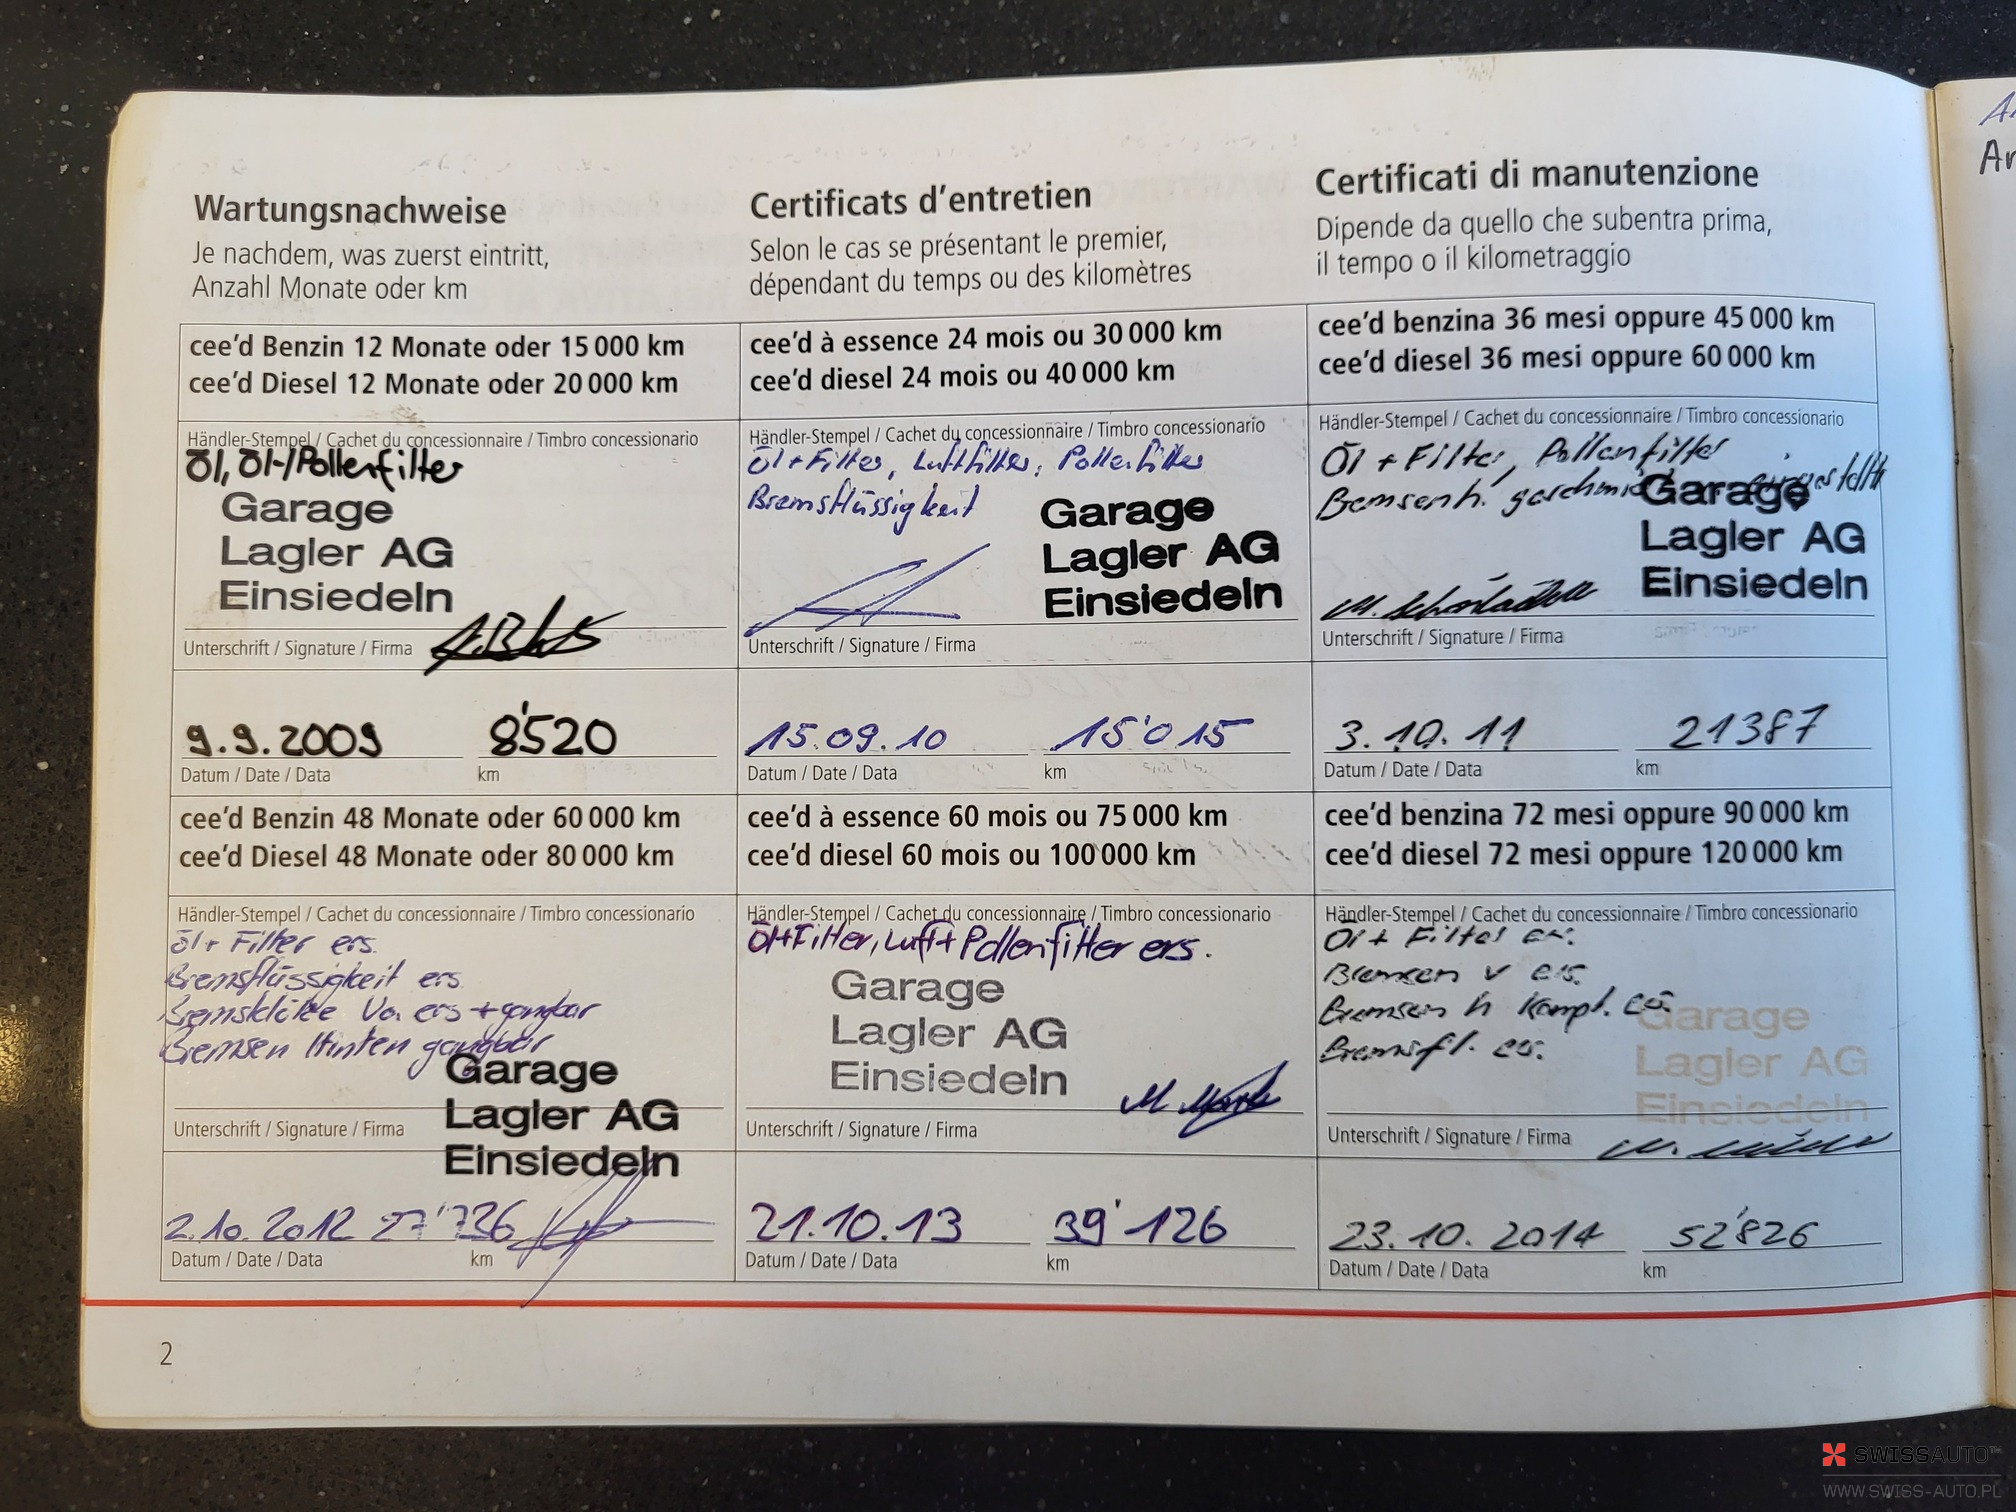 Wartungsnachweise
Je nachdem, was zuerst eintritt,
Anzahl Monate oder km
Certificats d'entretien
Selon le cas se présentant le premier,
dépendant du temps ou des kilomètres
Certificati di manutenzione
Dipende da quello che subentra prima,
il tempo o il kilometraggio
cee'd Benzin 12 Monate oder 15 000 km
cee'd Diesel 12 Monate oder 20 000 km
Händler-Stempel / Cachet du concessionnaire / Timbro concessionario
Öl, Öl-/Pollenfilter
Garage
Lagler AG
Einsiedeln
Unterschrift / Signature / Firma
9.9.2009 8'520
Datum / Date / Data km
cee'd à essence 24 mois ou 30 000 km
cee'd diesel 24 mois ou 40 000 km
Händler-Stempel / Cachet du concessionnaire / Timbro concessionario
Öl + Filter, Luftfilter, Pollenfilter
Bremsflüssigkeit
Garage
Lagler AG
Einsiedeln
Unterschrift / Signature / Firma
15.09.10 15'015
Datum / Date / Data km
cee'd benzina 36 mesi oppure 45 000 km
cee'd diesel 36 mesi oppure 60 000 km
Händler-Stempel / Cachet du concessionnaire / Timbro concessionario
Öl + Filter, Pollenfilter
Garage
Lagler AG
Einsiedeln
Unterschrift / Signature / Firma
3.10.11 21387
Datum / Date / Data km
cee'd Benzin 48 Monate oder 60 000 km
cee'd Diesel 48 Monate oder 80 000 km
Händler-Stempel / Cachet du concessionnaire / Timbro concessionario
Öl + Filter ers.
Bremsflüssigkeit ers.
Bremsklötze Vo. ers + gangbar
Bremsen Hinten gangbar
Garage
Lagler AG
Einsiedeln
Unterschrift / Signature / Firma
2.10.2012 27'726
Datum / Date / Data km
cee'd à essence 60 mois ou 75 000 km
cee'd diesel 60 mois ou 100 000 km
Händler-Stempel / Cachet du concessionnaire / Timbro concessionario
Öl+Filter, Luft+Pollenfilter ers.
Garage
Lagler AG
Einsiedeln
Unterschrift / Signature / Firma
21.10.13 39'126
Datum / Date / Data km
cee'd benzina 72 mesi oppure 90 000 km
cee'd diesel 72 mesi oppure 120 000 km
Händler-Stempel / Cachet du concessionnaire / Timbro concessionario
Öl + Filter ers.
Bremsen v ers.
Bremsen h kompl. ers.
Bremsfl. ers.
Garage
Lagler AG
Einsiedeln
Unterschrift / Signature / Firma
23.10.2014 52'826
Datum / Date / Data km
2
SWISSAUTO™
WWW.SWISS-AUTO.PL